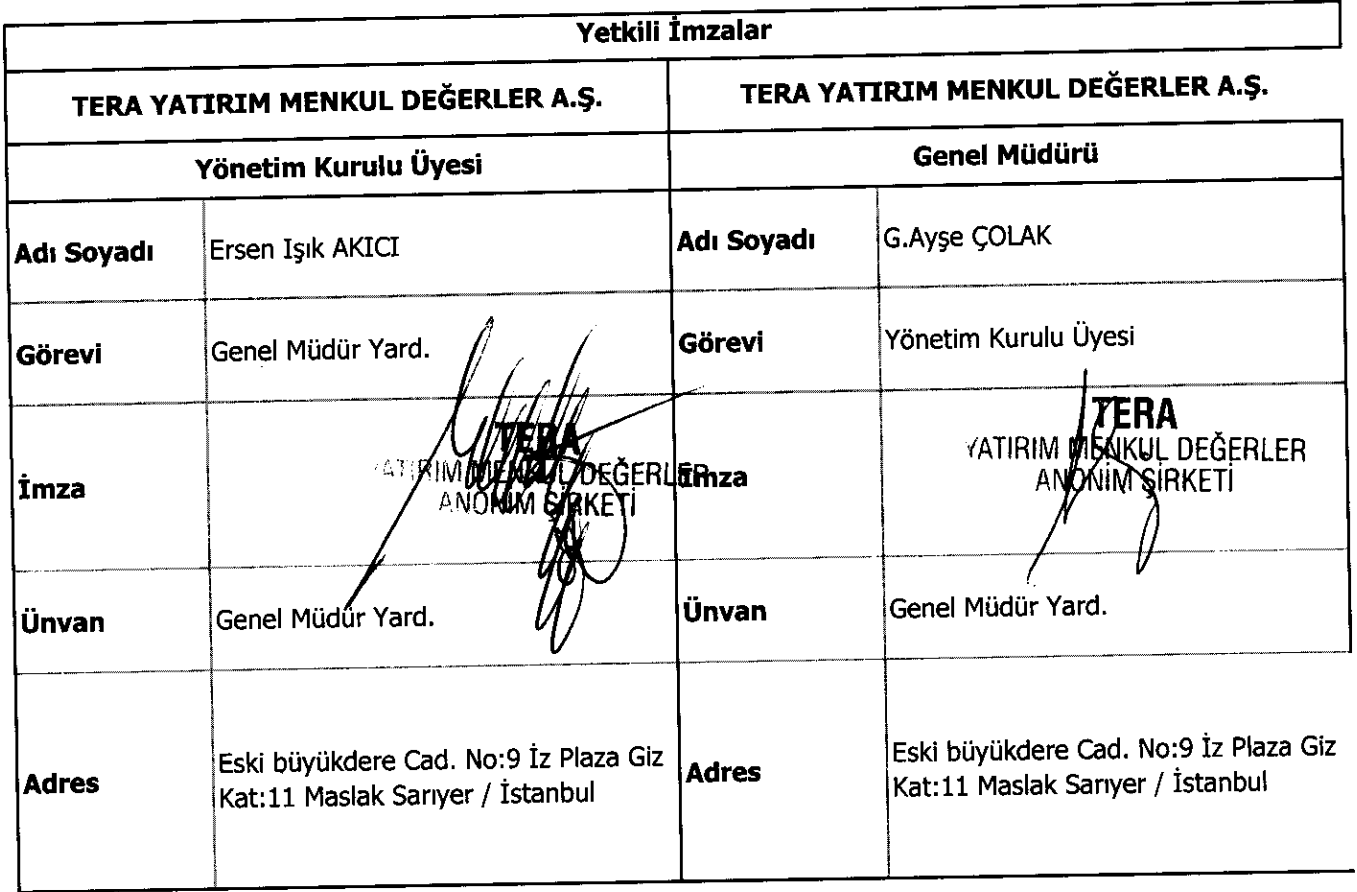 Yetkili İmzalar
TERA YATIRIM MENKUL DEĞERLER A.Ş.
TERA YATIRIM MENKUL DEĞERLER A.Ş.
Yönetim Kurulu Üyesi
Genel Müdürü
Adı Soyadı
Ersen Işık AKICI
Adı Soyadı
G.Ayşe ÇOLAK
Görevi
Genel Müdür Yard.
Görevi
Yönetim Kurulu Üyesi
İmza
TERA
YATIRIM MENKUL DEĞERLER
ANONİM ŞİRKETİ
İmza
TERA
YATIRIM MENKUL DEĞERLER
ANONİM ŞİRKETİ
Ünvan
Genel Müdür Yard.
Ünvan
Genel Müdür Yard.
Adres
Eski büyükdere Cad. No:9 İz Plaza Giz
Kat:11 Maslak Sarıyer / İstanbul
Adres
Eski büyükdere Cad. No:9 İz Plaza Giz
Kat:11 Maslak Sarıyer / İstanbul